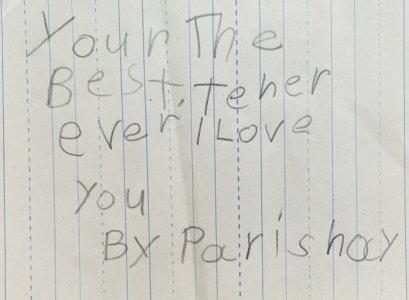 Your The
Best. Teher
ever, I Love
you
By Parishay